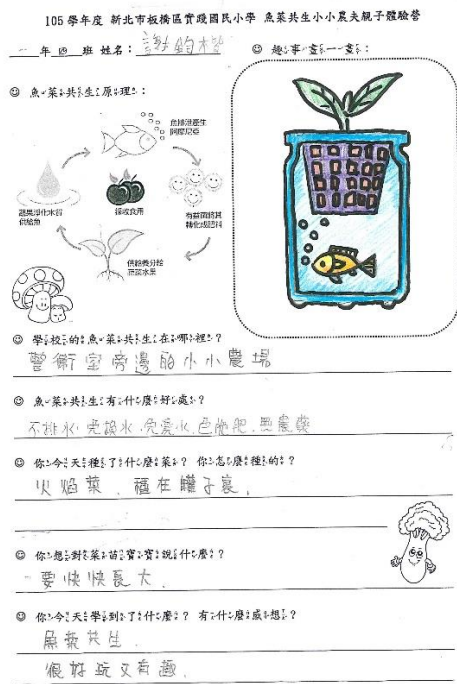 105 學年度 新北市板橋區實踐國民小學 魚菜共生小小農夫親子體驗營
一 年 四 班 姓名：謝鈞楷
☺ 趣事畫一畫：
☺ 魚菜共生原理：
魚排泄產生
阿摩尼亞
蔬果淨化水質
供給魚
採收食用
有益菌將其
轉化成肥料
供給養分給
蔬菜水果
☺ 學校的魚菜共生在哪裡？
警衛室旁邊的小小農場
☺ 魚菜共生有什麼好處？
不排水、免換水、免澆水、免施肥、無農藥
☺ 你今天種了什麼菜？ 你怎麼種的？
火焰菜、種在罐子裏、
☺ 你想對菜苗寶寶說什麼？
要快快長大、
☺ 你今天學到了什麼？ 有什麼感想？
魚菜共生、
很好玩又有趣、